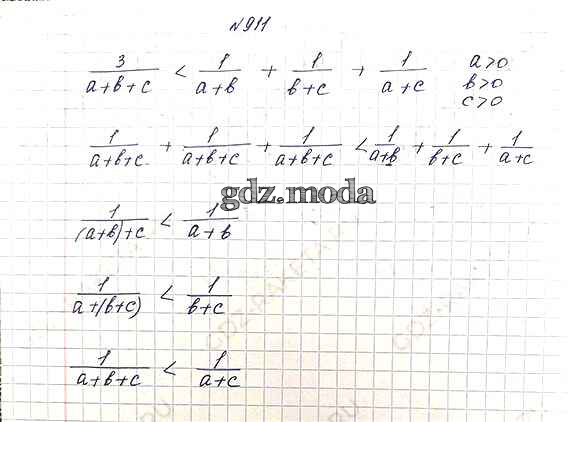 N911
3/(a+b+c) < 1/(a+b) + 1/(b+c) + 1/(a+c) a>0
b>0
c>0
1/(a+b+c) + 1/(a+b+c) + 1/(a+b+c) < 1/(a+b) + 1/(b+c) + 1/(a+c)
gdz.moda
1/((a+b)+c) < 1/(a+b)
1/(a+(b+c)) < 1/(b+c)
1/(a+b+c) < 1/(a+c)